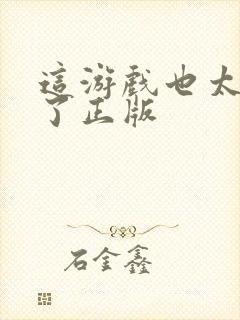 這游戲也太
了正版
石金鑫